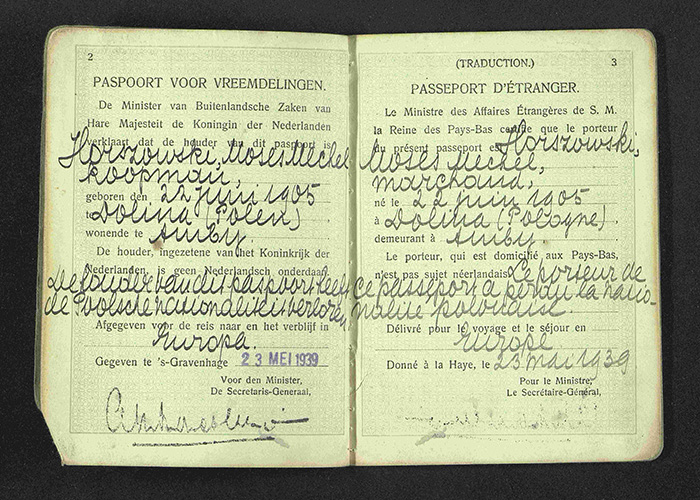 2
PASPOORT VOOR VREEMDELINGEN.
De Minister van Buitenlandsche Zaken van
Hare Majesteit de Koningin der Nederlanden
verklaart dat de houder van dit paspoort is
Horszowski, Moses Mechel
koopman,
geboren den 22 juni 1905
te Dolina (Polen)
wonende te Amby.
De houder, ingezetene van het Koninkrijk der
Nederlanden, is geen Nederlandsch onderdaan.
De houder van dit paspoort heeft
de Poolsche nationaliteit verloren
Afgegeven voor de reis naar en het verblijf in
Europa.
Gegeven te 's-Gravenhage 23 MEI 1939
Voor den Minister,
De Secretaris-Generaal,
(TRADUCTION.)
3
PASSEPORT D'ÉTRANGER.
Le Ministre des Affaires Étrangères de S. M.
la Reine des Pays-Bas certifie que le porteur
du présent passeport est Horszowski,
Moses Mechel,
marchand,
né le 22 juin 1905
à Dolina (Pologne)
demeurant à Amby.
Le porteur, qui est domicilié aux Pays-Bas,
n'est pas sujet néerlandais. Le porteur de
ce passeport a perdu la natio-
nalité polonaise.
Délivré pour le voyage et le séjour en
Europe
Donné à la Haye, le 23 mai 1939
Pour le Ministre,
Le Secrétaire-Général,